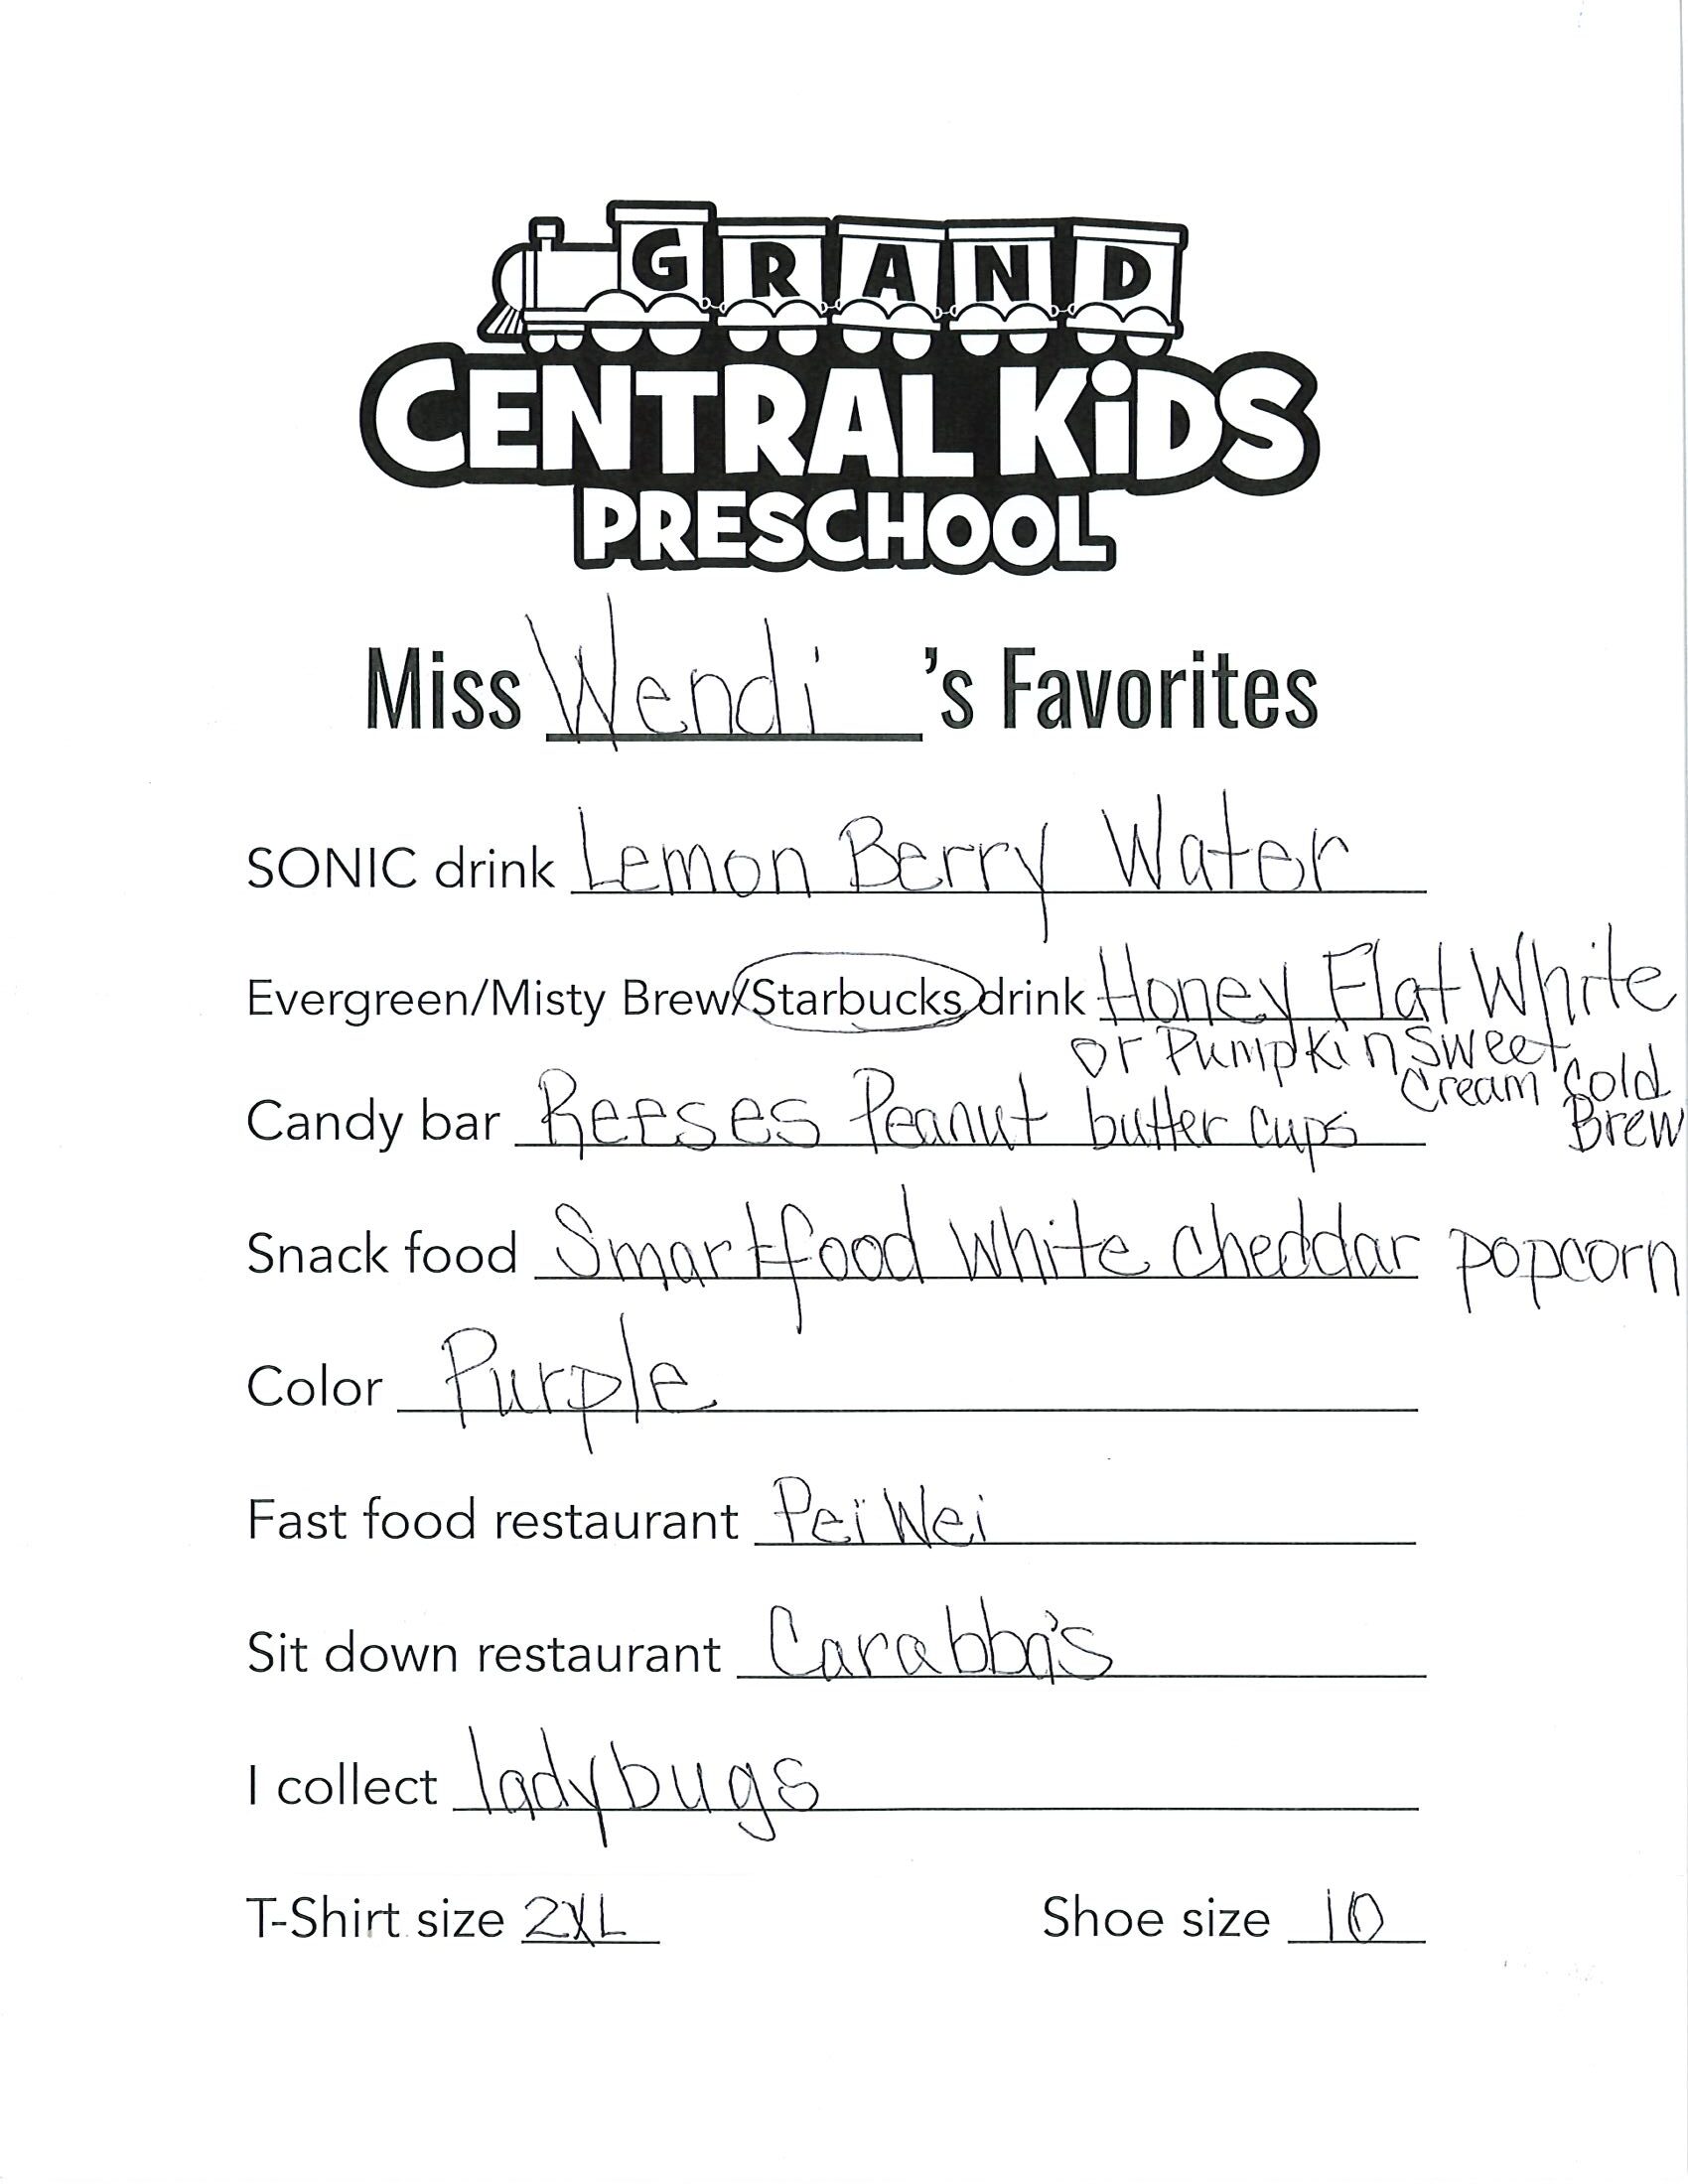 GRAND
CENTRAL KiDS
PRESCHOOL
Miss Wendi 's Favorites
SONIC drink Lemon Berry Water
Evergreen/Misty Brew/Starbucks drink Honey Flat White
or Pumpkin Sweet
Cream Cold
Brew
Candy bar Reeses Peanut butter cups
Snack food Smartfood White Cheddar popcorn
Color Purple
Fast food restaurant Pei Wei
Sit down restaurant Carabba's
I collect ladybugs
T-Shirt size 2XL Shoe size 10